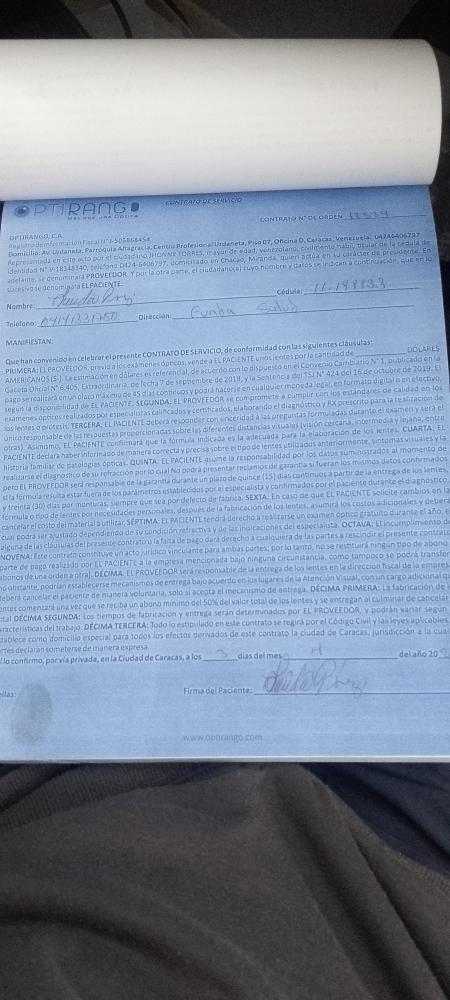 OPTIRANGO
Más que una Óptica
CONTRATO DE SERVICIO
CONTRATO N° DE ORDEN
OPTIRANGO, C.A.
Registro de Información Fiscal N° J-505868454
Domicilio: Av. Urdaneta, Parroquia Altagracia, Centro Profesional Urdaneta, Piso 07, Oficina D, Caracas, Venezuela. 04246406797
Representada en este acto por el ciudadano JHONNY TORRES, mayor de edad, venezolano, civilmente hábil, titular de la cédula de
identidad N° V-18348340, teléfono 0424-6406797, domiciliado en Chacao, Miranda, quien actúa en su carácter de presidente. En
adelante, se denominará PROVEEDOR. Y por la otra parte, el ciudadano(a) cuyo nombre y datos se indican a continuación, que en lo
sucesivo se denominará EL PACIENTE:
Nombre: Cédula:
Teléfono: 04141331750 Dirección: Salud
MANIFIESTAN:
Que han convenido en celebrar el presente CONTRATO DE SERVICIO, de conformidad con las siguientes cláusulas:
PRIMERA: EL PROVEEDOR, previo a los exámenes ópticos, vende a EL PACIENTE unos lentes por la cantidad de DÓLARES
AMERICANOS ($ ). La estimación en dólares es referencial, de acuerdo con lo dispuesto en el Convenio Cambiario N° 1, publicado en la
Gaceta Oficial N° 6.405, Extraordinaria, de fecha 7 de septiembre de 2018, y la Sentencia del TSJ N° 424 del 16 de octubre de 2019. El
pago se realizará en un plazo máximo de 45 días continuos y podrá hacerse en cualquier moneda legal, en formato digital o en efectivo,
según la disponibilidad de EL PACIENTE. SEGUNDA: EL PROVEEDOR se compromete a cumplir con los estándares de calidad en los
exámenes ópticos realizados por especialistas calificados y certificados, elaborando el diagnóstico y RX prescrito para la realización de
los lentes o prótesis. TERCERA: EL PACIENTE deberá responder con sinceridad a las preguntas formuladas durante el examen y será el
único responsable de las respuestas proporcionadas sobre las diferentes distancias visuales (visión cercana, intermedia y lejana, entre
otras). Asimismo, EL PACIENTE confirmará que la fórmula indicada es la adecuada para la elaboración de los lentes. CUARTA: EL
PACIENTE declara haber informado de manera correcta y precisa sobre el tipo de lentes utilizados anteriormente, síntomas visuales y la
historia familiar de patologías ópticas. QUINTA: EL PACIENTE asume la responsabilidad por los datos suministrados al momento de
realizarse el diagnóstico de su refracción por lo cual No podrá presentar reclamos de garantía si fueran los mismos datos confirmados,
pero EL PROVEEDOR será responsable de la garantía durante un plazo de quince (15) días continuos a partir de la entrega de los lentes,
si la fórmula resulta estar fuera de los parámetros establecidos por el especialista y confirmados por el paciente durante el diagnóstico,
y treinta (30) días por monturas, siempre que sea por defecto de fábrica. SEXTA: En caso de que EL PACIENTE solicite cambios en la
fórmula o tipo de lentes por necesidades personales, después de la fabricación de los lentes, asumirá los costos adicionales y deberá
cancelar el costo del material a utilizar. SÉPTIMA: EL PACIENTE tendrá derecho a realizarse un examen óptico gratuito durante el año, e
cual podrá ser ajustado dependiendo de su condición refractiva y de las indicaciones del especialista. OCTAVA: El incumplimiento de
alguna de las cláusulas del presente contrato o la falta de pago dará derecho a cualquiera de las partes a rescindir el presente contrato
NOVENA: Este contrato constituye un acto jurídico vinculante para ambas partes; por lo tanto, no se restituirá ningún tipo de abono
parte de pago realizado por EL PACIENTE a la empresa mencionada bajo ninguna circunstancia, como tampoco se podrá transferir
abonos de una orden a otra). DÉCIMA: EL PROVEEDOR será responsable de la entrega de los lentes en la dirección fiscal de la empres
no obstante, podrían establecerse mecanismos de entrega bajo acuerdo en los lugares de la Atención Visual, con un cargo adicional q
deberá cancelar el paciente de manera voluntaria, solo si acepta el mecanismo de entrega. DÉCIMA PRIMERA: La fabricación de l
entes comenzará una vez que se reciba un abono mínimo del 50% del valor total de los lentes y se entregan al culminar de cancelar
otal DÉCIMA SEGUNDA: Los tiempos de fabricación y entrega serán determinados por EL PROVEEDOR, y podrán variar según
aracterísticas del trabajo. DÉCIMA TERCERA: Todo lo estipulado en este contrato se regirá por el Código Civil y las leyes aplicables
tablece como domicilio especial para todos los efectos derivados de este contrato la ciudad de Caracas, jurisdicción a la cual
rtes declaran someterse de manera expresa.
lo confirmo, por vía privada, en la Ciudad de Caracas, a los 3 días del mes 4 del año 20
ellas: Firma del Paciente:
www.optirango.com